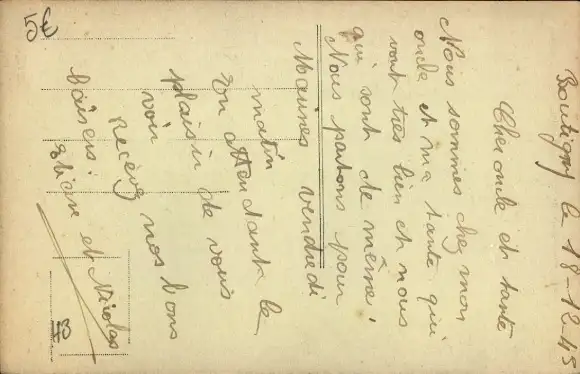 Boutigny le 18-12-45
Cher oncle et tante
Nous sommes chez mon
oncle et ma tante qui
vont très bien et nous
qui sont de même,
Nous partons pour
vendredi
matin
En attendant le
plaisir de vous
voir
recevez nos bons
baisers.
et Nicolas
5€